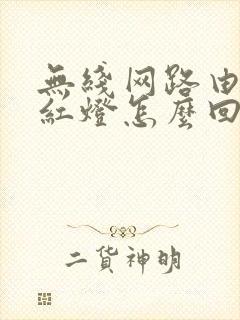 無綫网路由
紅燈怎麼回
二货神明